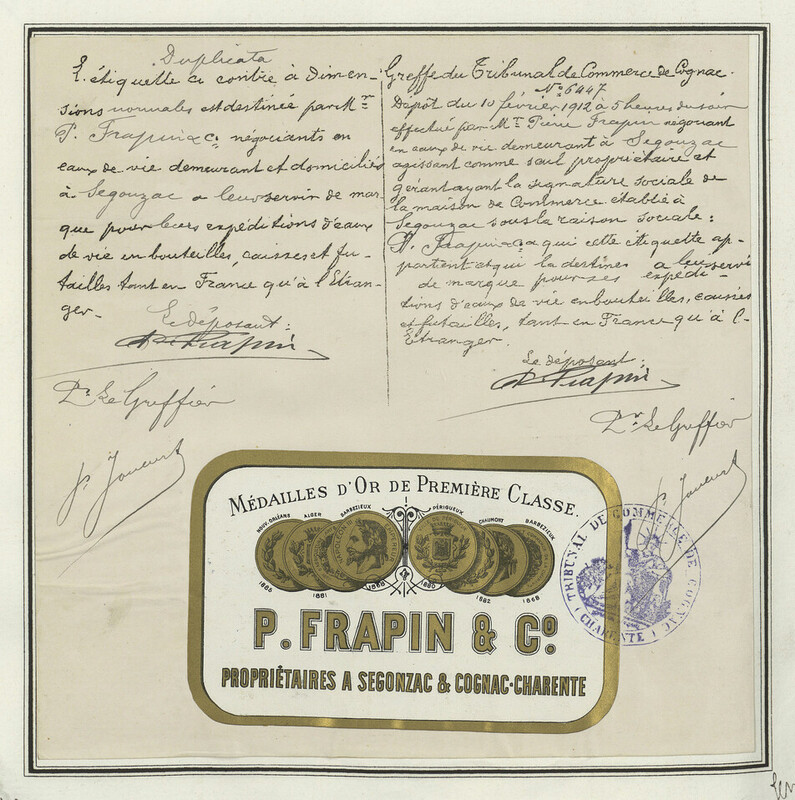 Duplicata
L'étiquette ci contre à dimen-
sions normales est destinée par Mr
P. Frapin & Co négociants en
eaux de vie demeurant et domiciliés
à Segonzac a leur servir de mar-
que pour leurs expéditions d'eaux
de vie en bouteilles, caisses et fu-
tailles tant en France qu'à l'Etran-
ger.-
Le déposant:
P. Frapin
Pr. Le Greffier
Greffe du Tribunal de Commerce de Cognac.
No. 6447
Dépot du 10 février 1912 à 5 heures du soir
effectué par Mr. Pierre Frapin négociant
en eaux de vie demeurant à Segonzac
agissant comme seul propriétaire et
gérant ayant la signature sociale de
la maison de Commerce établie à
Segonzac sous la raison sociale:
P. Frapin & Co a qui cette étiquette ap-
partient et qui la destines a leur servi
de marque pour ses expédi-
tions d'eaux de vie en bouteilles, caisses
et futailles, tant en France qu'à l'-
Etranger.
Le déposant:
P. Frapin
Pr. Le Greffier
MÉDAILLES D'OR DE PREMIÈRE CLASSE.
NOUV. ORLÉANS ALGER BARBEZIEUX PÉRIGUEUX CHAUMONT BARBEZIEUX
1885 1881 1868 1880 1882 1868
P. FRAPIN & Co.
PROPRIÉTAIRES A SEGONZAC & COGNAC-CHARENTE
TRIBUNAL DE COMMERCE DE COGNAC
(CHARENTE)